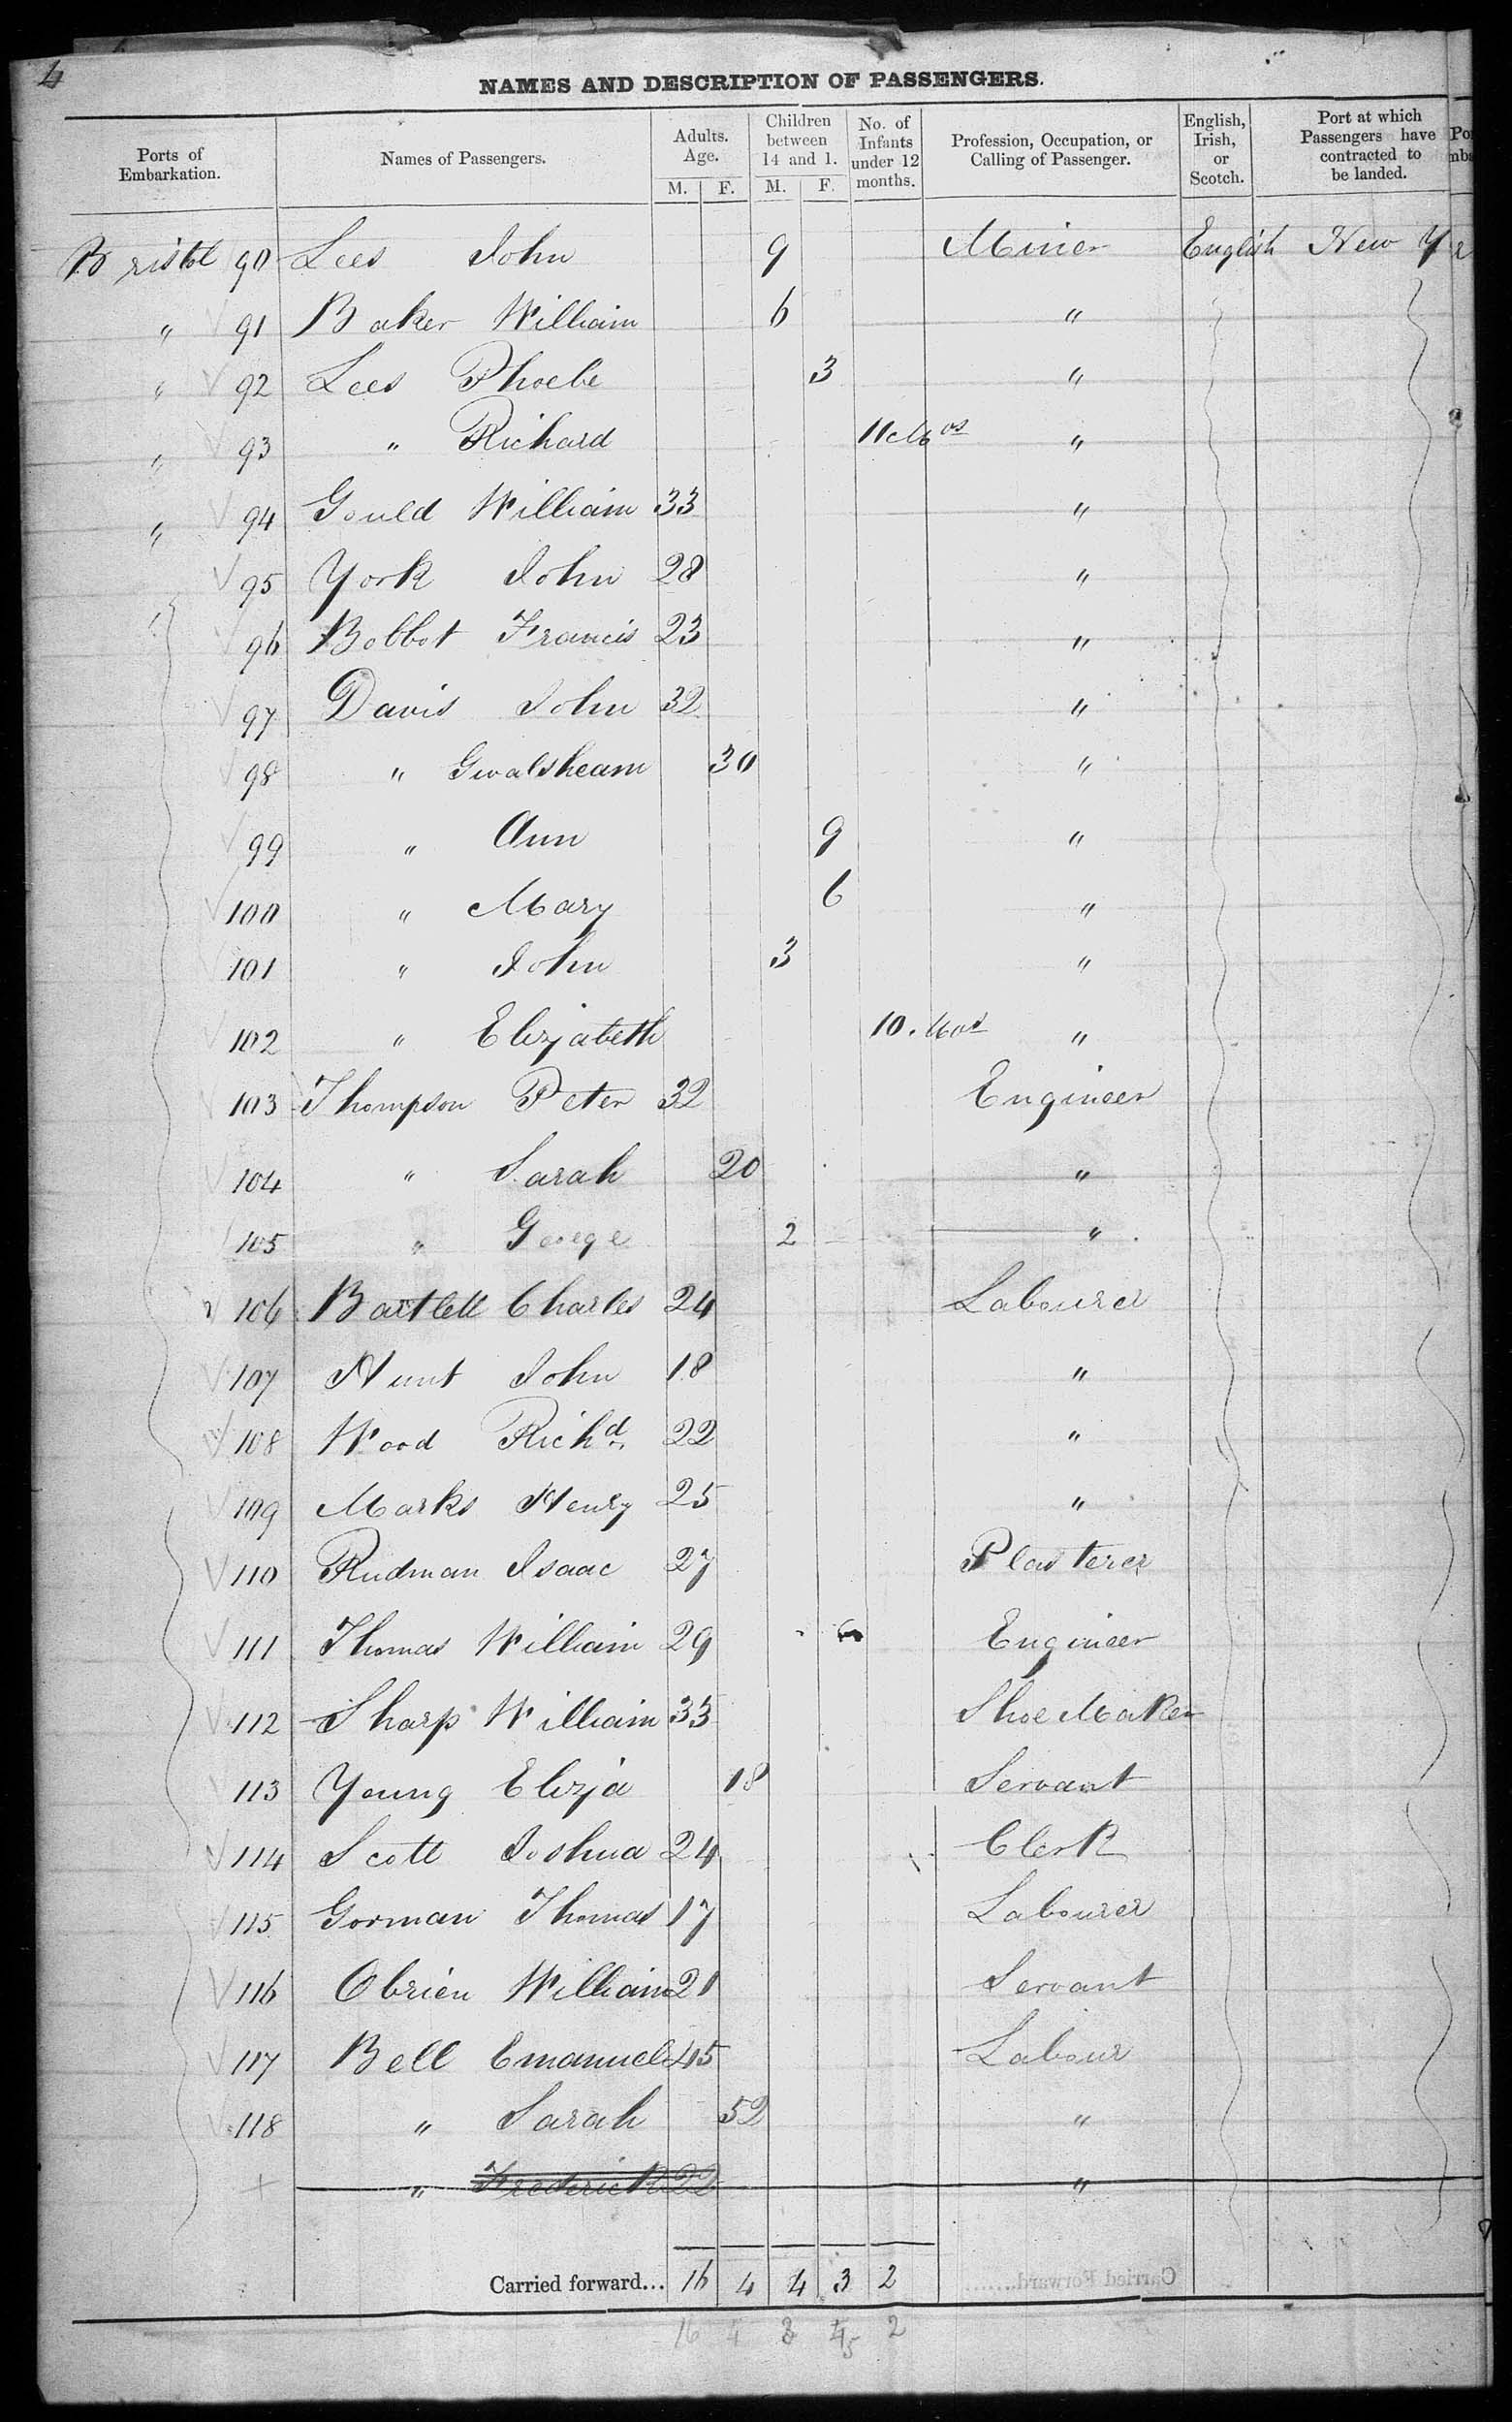 4
NAMES AND DESCRIPTION OF PASSENGERS.
Ports of Embarkation. Names of Passengers. Adults. Age. M. F. Children between 14 and 1. M. F. No. of Infants under 12 months. Profession, Occupation, or Calling of Passenger. English, Irish, or Scotch. Port at which Passengers have contracted to be landed.
Bristol 90 Lees John 9 Miner English New Y
" 91 Baker William 6 "
" 92 Lees Phoebe 3 "
" 93 " Richard 11 Mos "
" 94 Gould William 33 "
95 York John 28 "
96 Bobbot Francis 23 "
97 Davis John 32 "
98 " Gwalsheam 30 "
99 " Ann 9 "
100 " Mary 6 "
101 " John 3 "
102 " Elizabeth 10. Mos "
103 Thompson Peter 32 Engineer
104 " Sarah 20 "
105 " George 2 "
106 Bartlett Charles 24 Labourer
107 Hunt John 18 "
108 Wood Richd. 22 "
109 Marks Henry 25 "
110 Rudman Isaac 27 Plasterer
111 Thomas William 29 Engineer
112 Sharp William 33 Shoe Maker
113 Young Eliza 18 Servant
114 Scott Joshua 24 Clerk
115 Gorman Thomas 17 Labourer
116 Obrien William 21 Servant
117 Bell Emanuel 45 Labour
118 " Sarah 52 "
+ " Frederick 22 "
Carried forward... 16 4 4 3 2
Carried Forward........
16 4 3 4 5 2